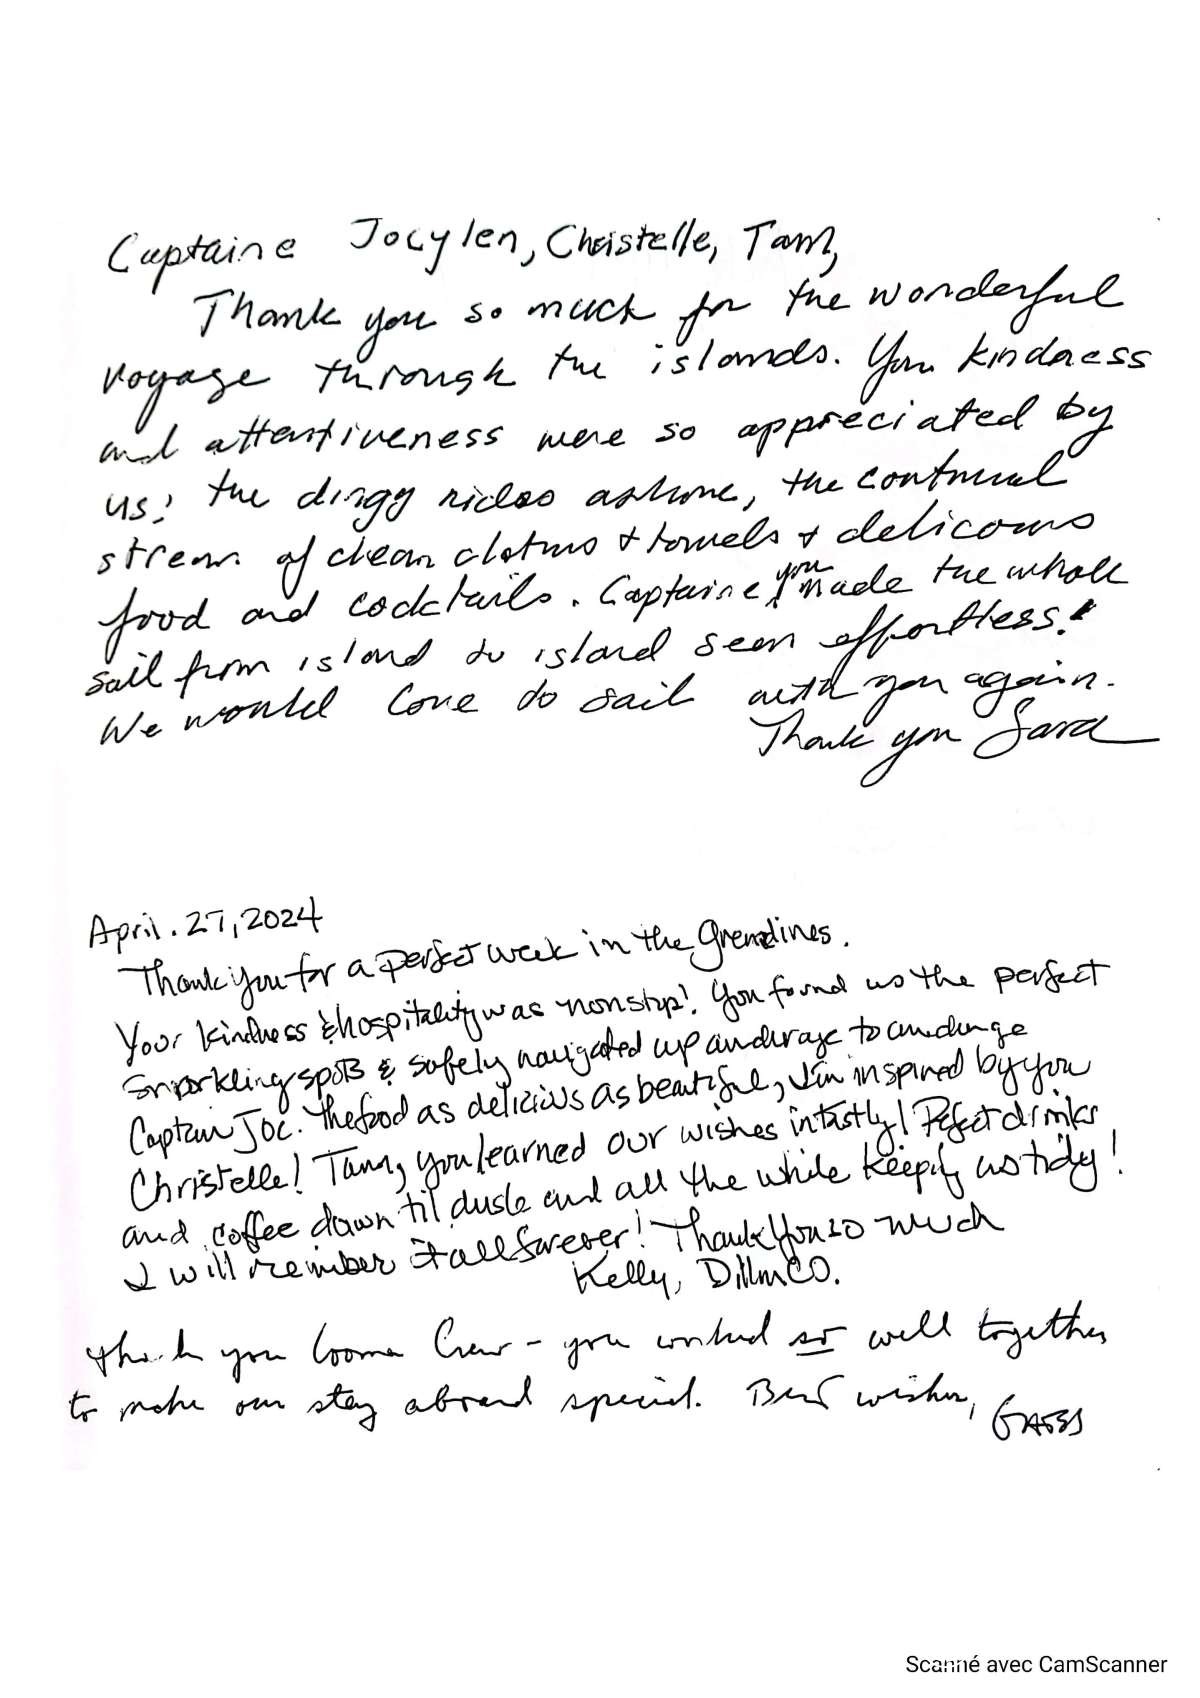 Captaine Jocylen, Christelle, Tam,
Thank you so much for the wonderful
voyage through the islands. Your kindness
and attentiveness were so appreciated by
us: the dingy rides ashore, the continual
stream of clean clothes + towels + delicious
food and cocktails. Captaine, you made the whole
sail from island to island seem effortless!
We would love to sail with you again.
Thank you Sara
April. 27, 2024
Thank you for a perfect week in the Grenadines.
Your kindness & hospitality was nonstop! You found us the perfect
snorkling spots & safely navigated up anchorage to anchorage
Captain Joc. The food as delicious as beautiful, I'm inspired by you
Christelle! Tam, you learned our wishes instantly! Perfect drinks
and coffee dawn 'til dusk and all the while keeping us tidy!
I will remember it all forever! Thank You so much
Kelly,
Thank you Crew - you worked so well together
to make our stay aboard special. Best wishes,
Scanné avec CamScanner